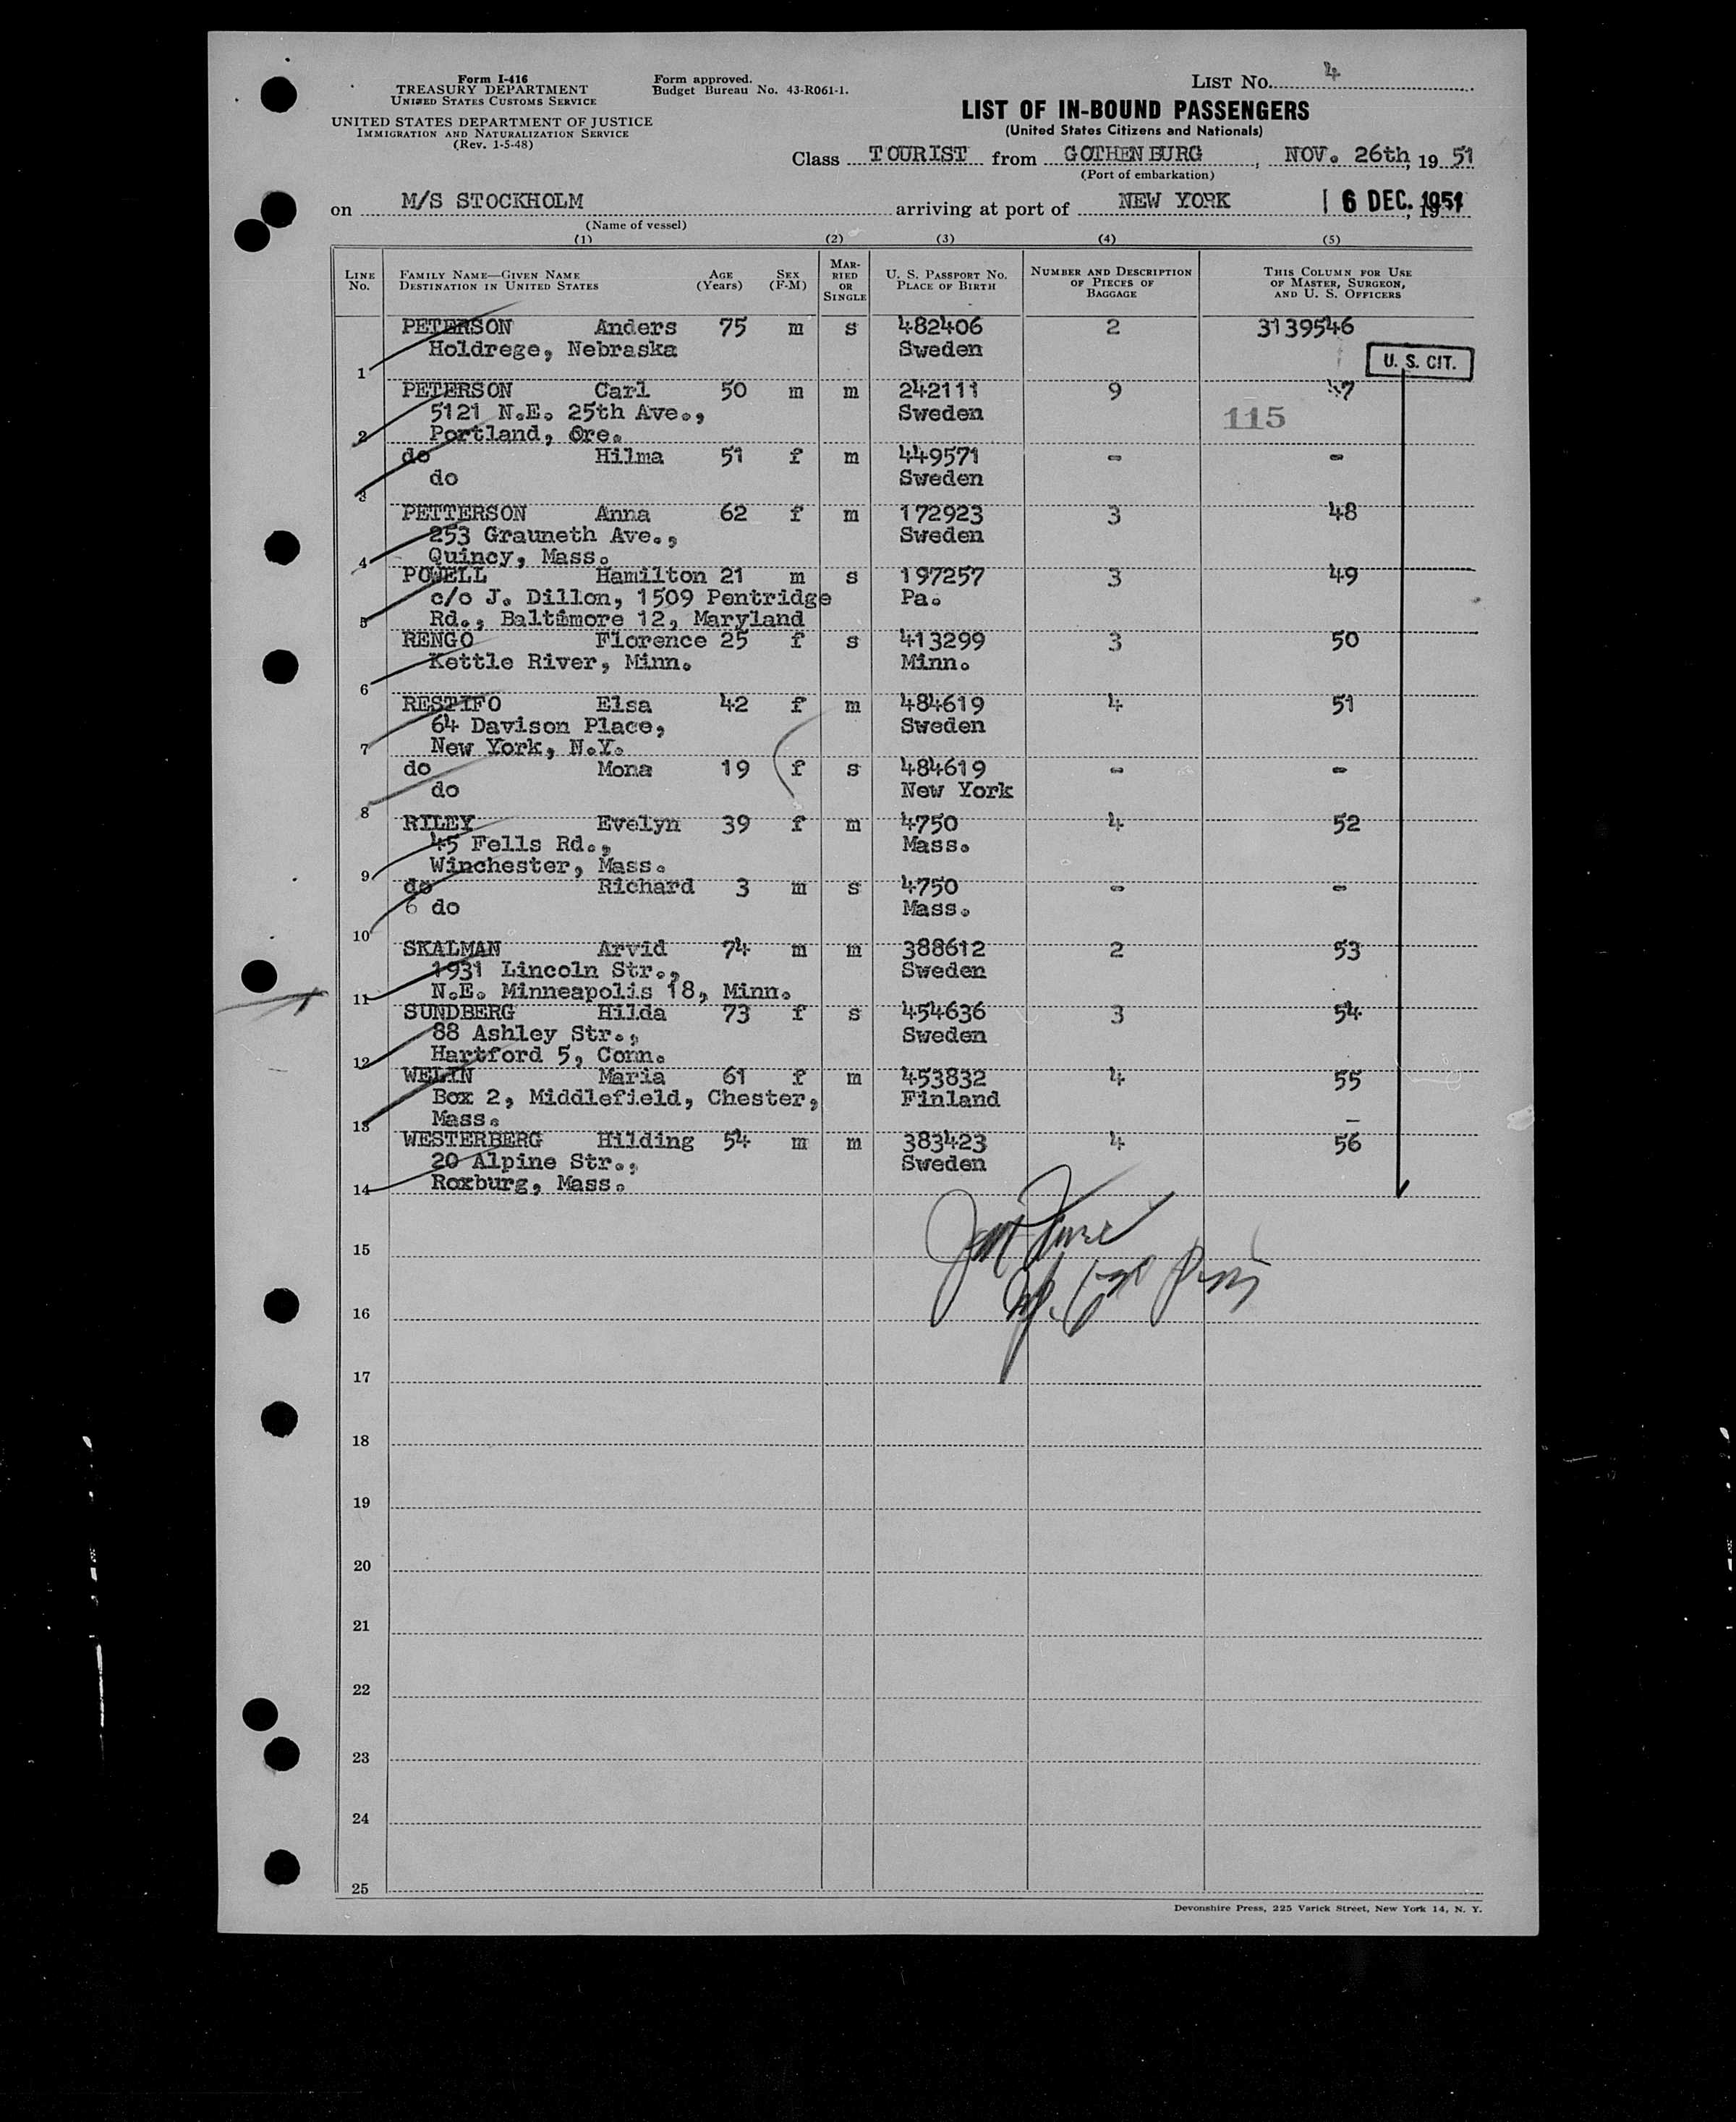 Form I-416
TREASURY DEPARTMENT
UNITED STATES CUSTOMS SERVICE
UNITED STATES DEPARTMENT OF JUSTICE
IMMIGRATION AND NATURALIZATION SERVICE
(Rev. 1-5-48)
Form approved.
Budget Bureau No. 43-R061-1.
LIST NO. 4
LIST OF IN-BOUND PASSENGERS
(United States Citizens and Nationals)
Class TOURIST from GOTHENBURG, NOV. 26th, 19 51
(Port of embarkation)
on M/S STOCKHOLM arriving at port of NEW YORK 6 DEC. 1951
(Name of vessel)
(1) (2) (3) (4) (5)
LINE NO. FAMILY NAME—GIVEN NAME DESTINATION IN UNITED STATES AGE (Years) SEX (F-M) MARRIED OR SINGLE U. S. PASSPORT NO. PLACE OF BIRTH NUMBER AND DESCRIPTION OF PIECES OF BAGGAGE THIS COLUMN FOR USE OF MASTER, SURGEON, AND U. S. OFFICERS
PETERSON Anders 75 m s 482406 2 3139546
Holdrege, Nebraska Sweden
1 U. S. CIT.
PETERSON Carl 50 m m 242111 9 47
5121 N.E. 25th Ave., Sweden 115
2 Portland, Ore.
do Hilma 51 f m 449571 - -
do Sweden
3
PETTERSON Anna 62 f m 172923 3 48
253 Grauneth Ave., Sweden
4 Quincy, Mass.
POWELL Hamilton 21 m s 197257 3 49
c/o J. Dillon, 1509 Pentridge Pa.
5 Rd., Baltimore 12, Maryland
RENGO Florence 25 f s 413299 3 50
Kettle River, Minn. Minn.
6
RESTIFO Elsa 42 f m 484619 4 51
64 Davison Place, Sweden
7 New York, N.Y.
do Mona 19 f s 484619 - -
do New York
8
RILEY Evelyn 39 f m 4750 4 52
45 Fells Rd., Mass.
9 Winchester, Mass.
do Richard 3 m s 4750 - -
6 do Mass.
10
SKALMAN Arvid 74 m m 388612 2 53
1931 Lincoln Str., Sweden
11 N.E. Minneapolis 18, Minn.
SUNDBERG Hilda 73 f s 454636 3 54
88 Ashley Str., Sweden
12 Hartford 5, Conn.
WELIN Maria 61 f m 453832 4 55
Box 2, Middlefield, Chester, Finland
13 Mass.
WESTERBERG Hilding 54 m m 383423 4 56
20 Alpine Str., Sweden
14 Roxburg, Mass.
15
16
17
18
19
20
21
22
23
24
25
Devonshire Press, 225 Varick Street, New York 14, N. Y.